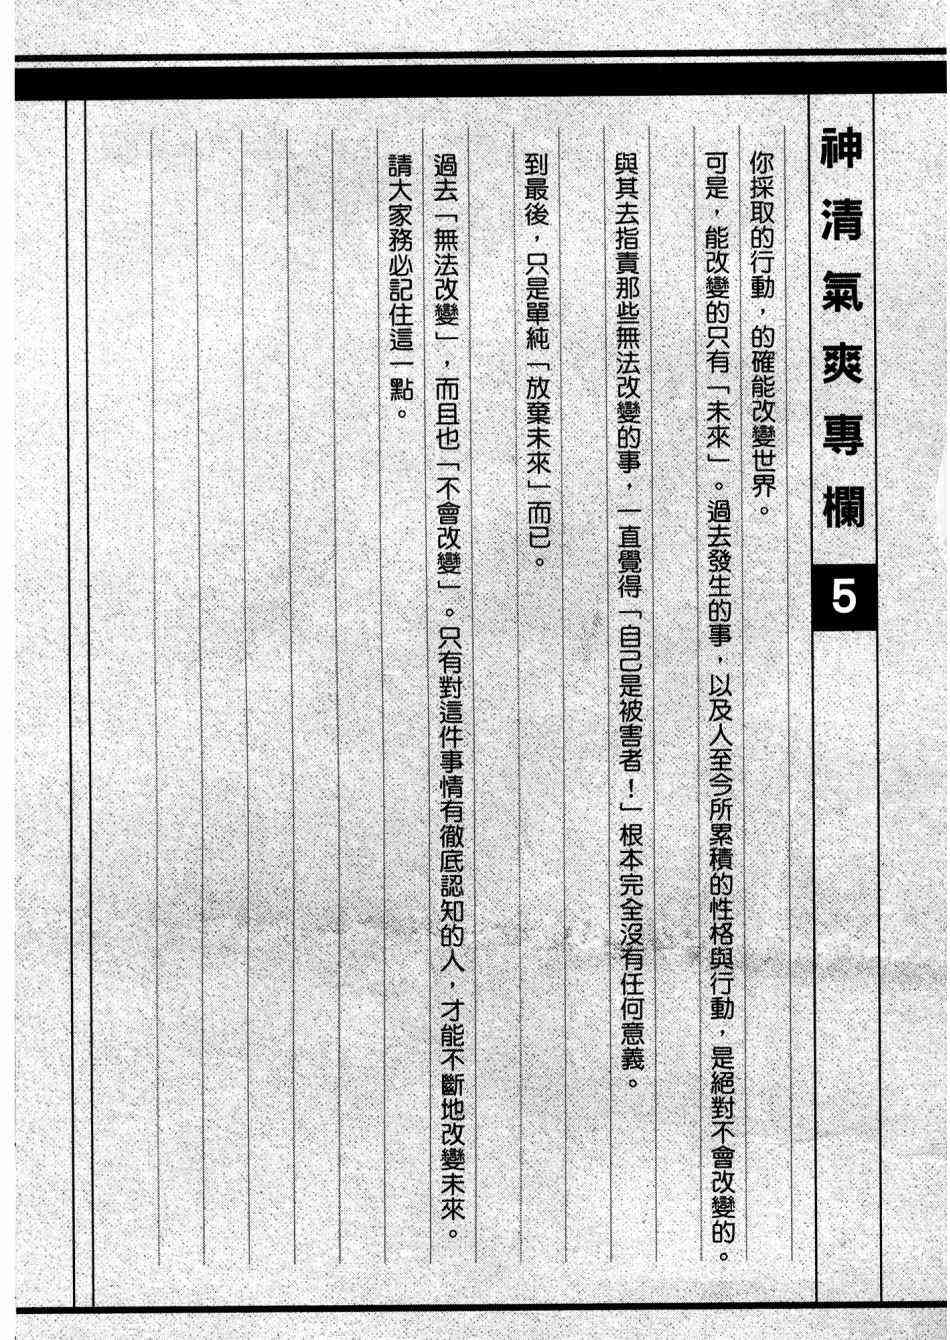 神清氣爽專欄 5
你採取的行動，的確能改變世界。
可是，能改變的只有「未來」。過去發生的事，以及人至今所累積的性格與行動，是絕對不會改變的。
與其去指責那些無法改變的事，一直覺得「自己是被害者！」根本完全沒有任何意義。
到最後，只是單純「放棄未來」而已。
過去「無法改變」，而且也「不會改變」。只有對這件事情有徹底認知的人，才能不斷地改變未來。
請大家務必記住這一點。